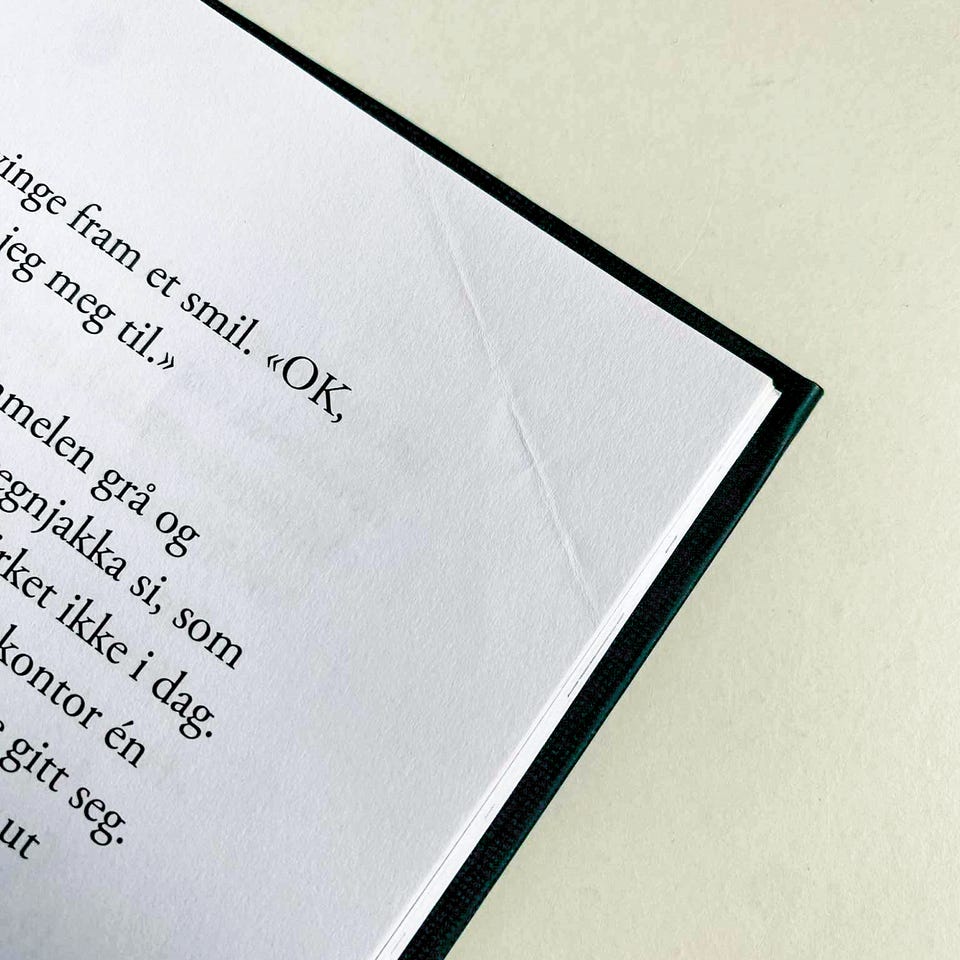 vinge fram et smil. «OK,
jeg meg til.»
mmelen grå og
egnjakka si, som
rket ikke i dag.
kontor én
gitt seg.
ut